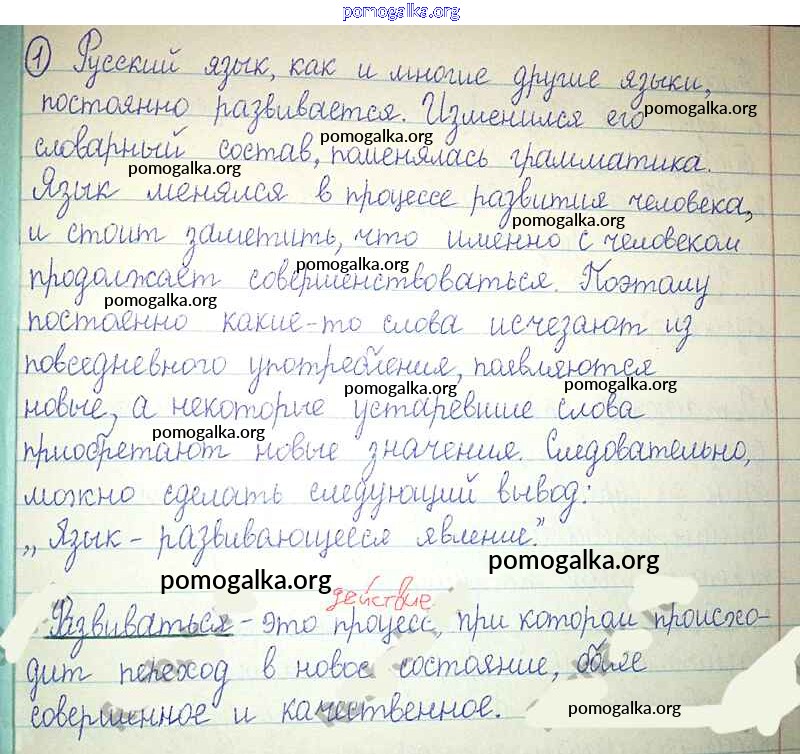 pomogalka.org
① Русский язык, как и многие другие языки,
постоянно развивается. Изменился его
pomogalka.org
pomogalka.org
словарный состав, поменялась грамматика.
pomogalka.org
Язык менялся в процессе развития человека,
pomogalka.org
и стоит заметить, что именно с человеком
pomogalka.org
продолжает совершенствоваться. Поэтому
pomogalka.org
постоенно какие-то слова исчезают из
повседневного употребления, появляются
pomogalka.org
pomogalka.org
новые, а некоторые устаревшие слова
pomogalka.org
приобретают новые значения. Следовательно,
можно сделать следующий вывод:
„Язык - развивающееся явление."
pomogalka.org
pomogalka.org
действие
Развиваться - это процесс, при котором происхо-
дит переход в новое состояние, более
совершенное и качественное.
pomogalka.org